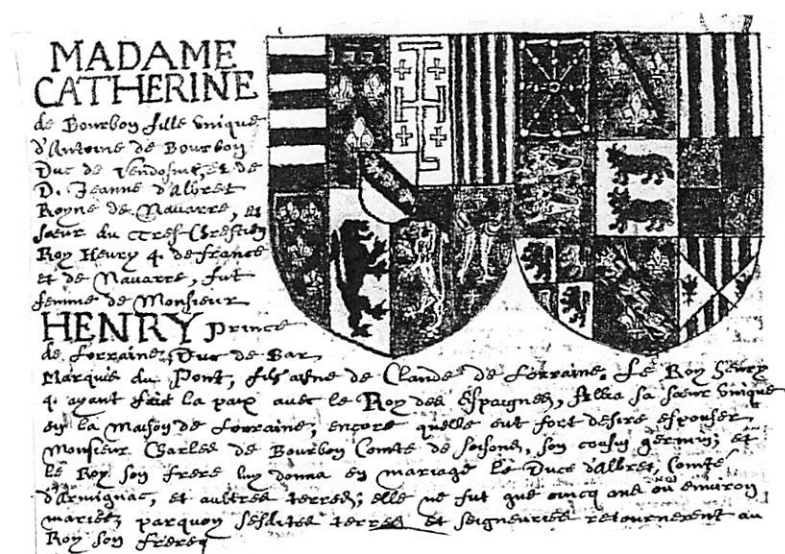 MADAME
CATHERINE
de Bourbon fille vnique
d'Antoine de Bourbon
Duc de Vendosme, et de
D. Jeanne d'Albret
Royne de Navarre, et
sœur du Tres Chrestien
Roy Henry 4. de france
et de Navarre, fut
femme de Monsieur
HENRY prince
de Lorraine, Duc de Bar
Marquis du Pont, fils aisne de Claude de Lorraine. Le Roy Henry
4. ayant faict la paix avec le Roy des Espagnes, Allia sa sœur vnique
en la Maison de Lorraine; encore quelle eut fort desire espouser
Monsieur Charles de Bourbon Comte de soisons, son cousin germin; et
le Roy son frere luy donna en mariage le Duce d'albret, Comté
d'Armignac, et aultres terres; elle ne fut que cincq ans ou environ
mariée, parquoy sesdites terres et seigneuries retournerent au
Roy son frere